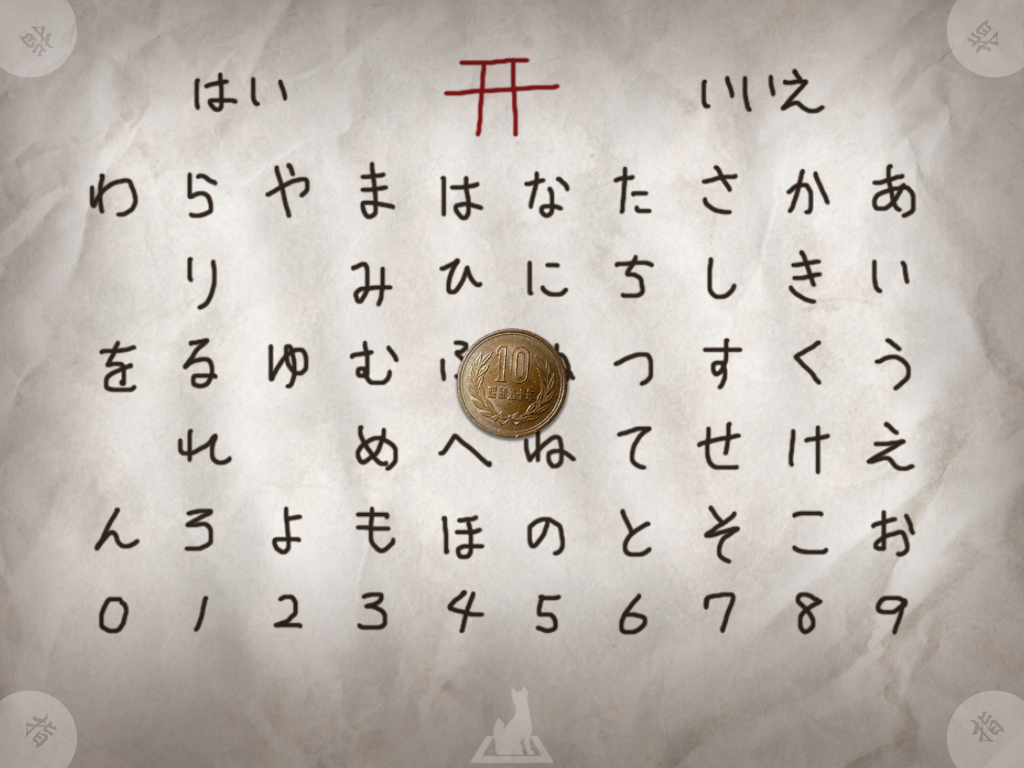 はい いいえ
わ ら や ま は な た さ か あ
り み ひ に ち し き い
を る ゆ む ふ つ す く う
れ め へ ね て せ け え
ん ろ よ も ほ の と そ こ お
0 1 2 3 4 5 6 7 8 9
10
指
指
指
指